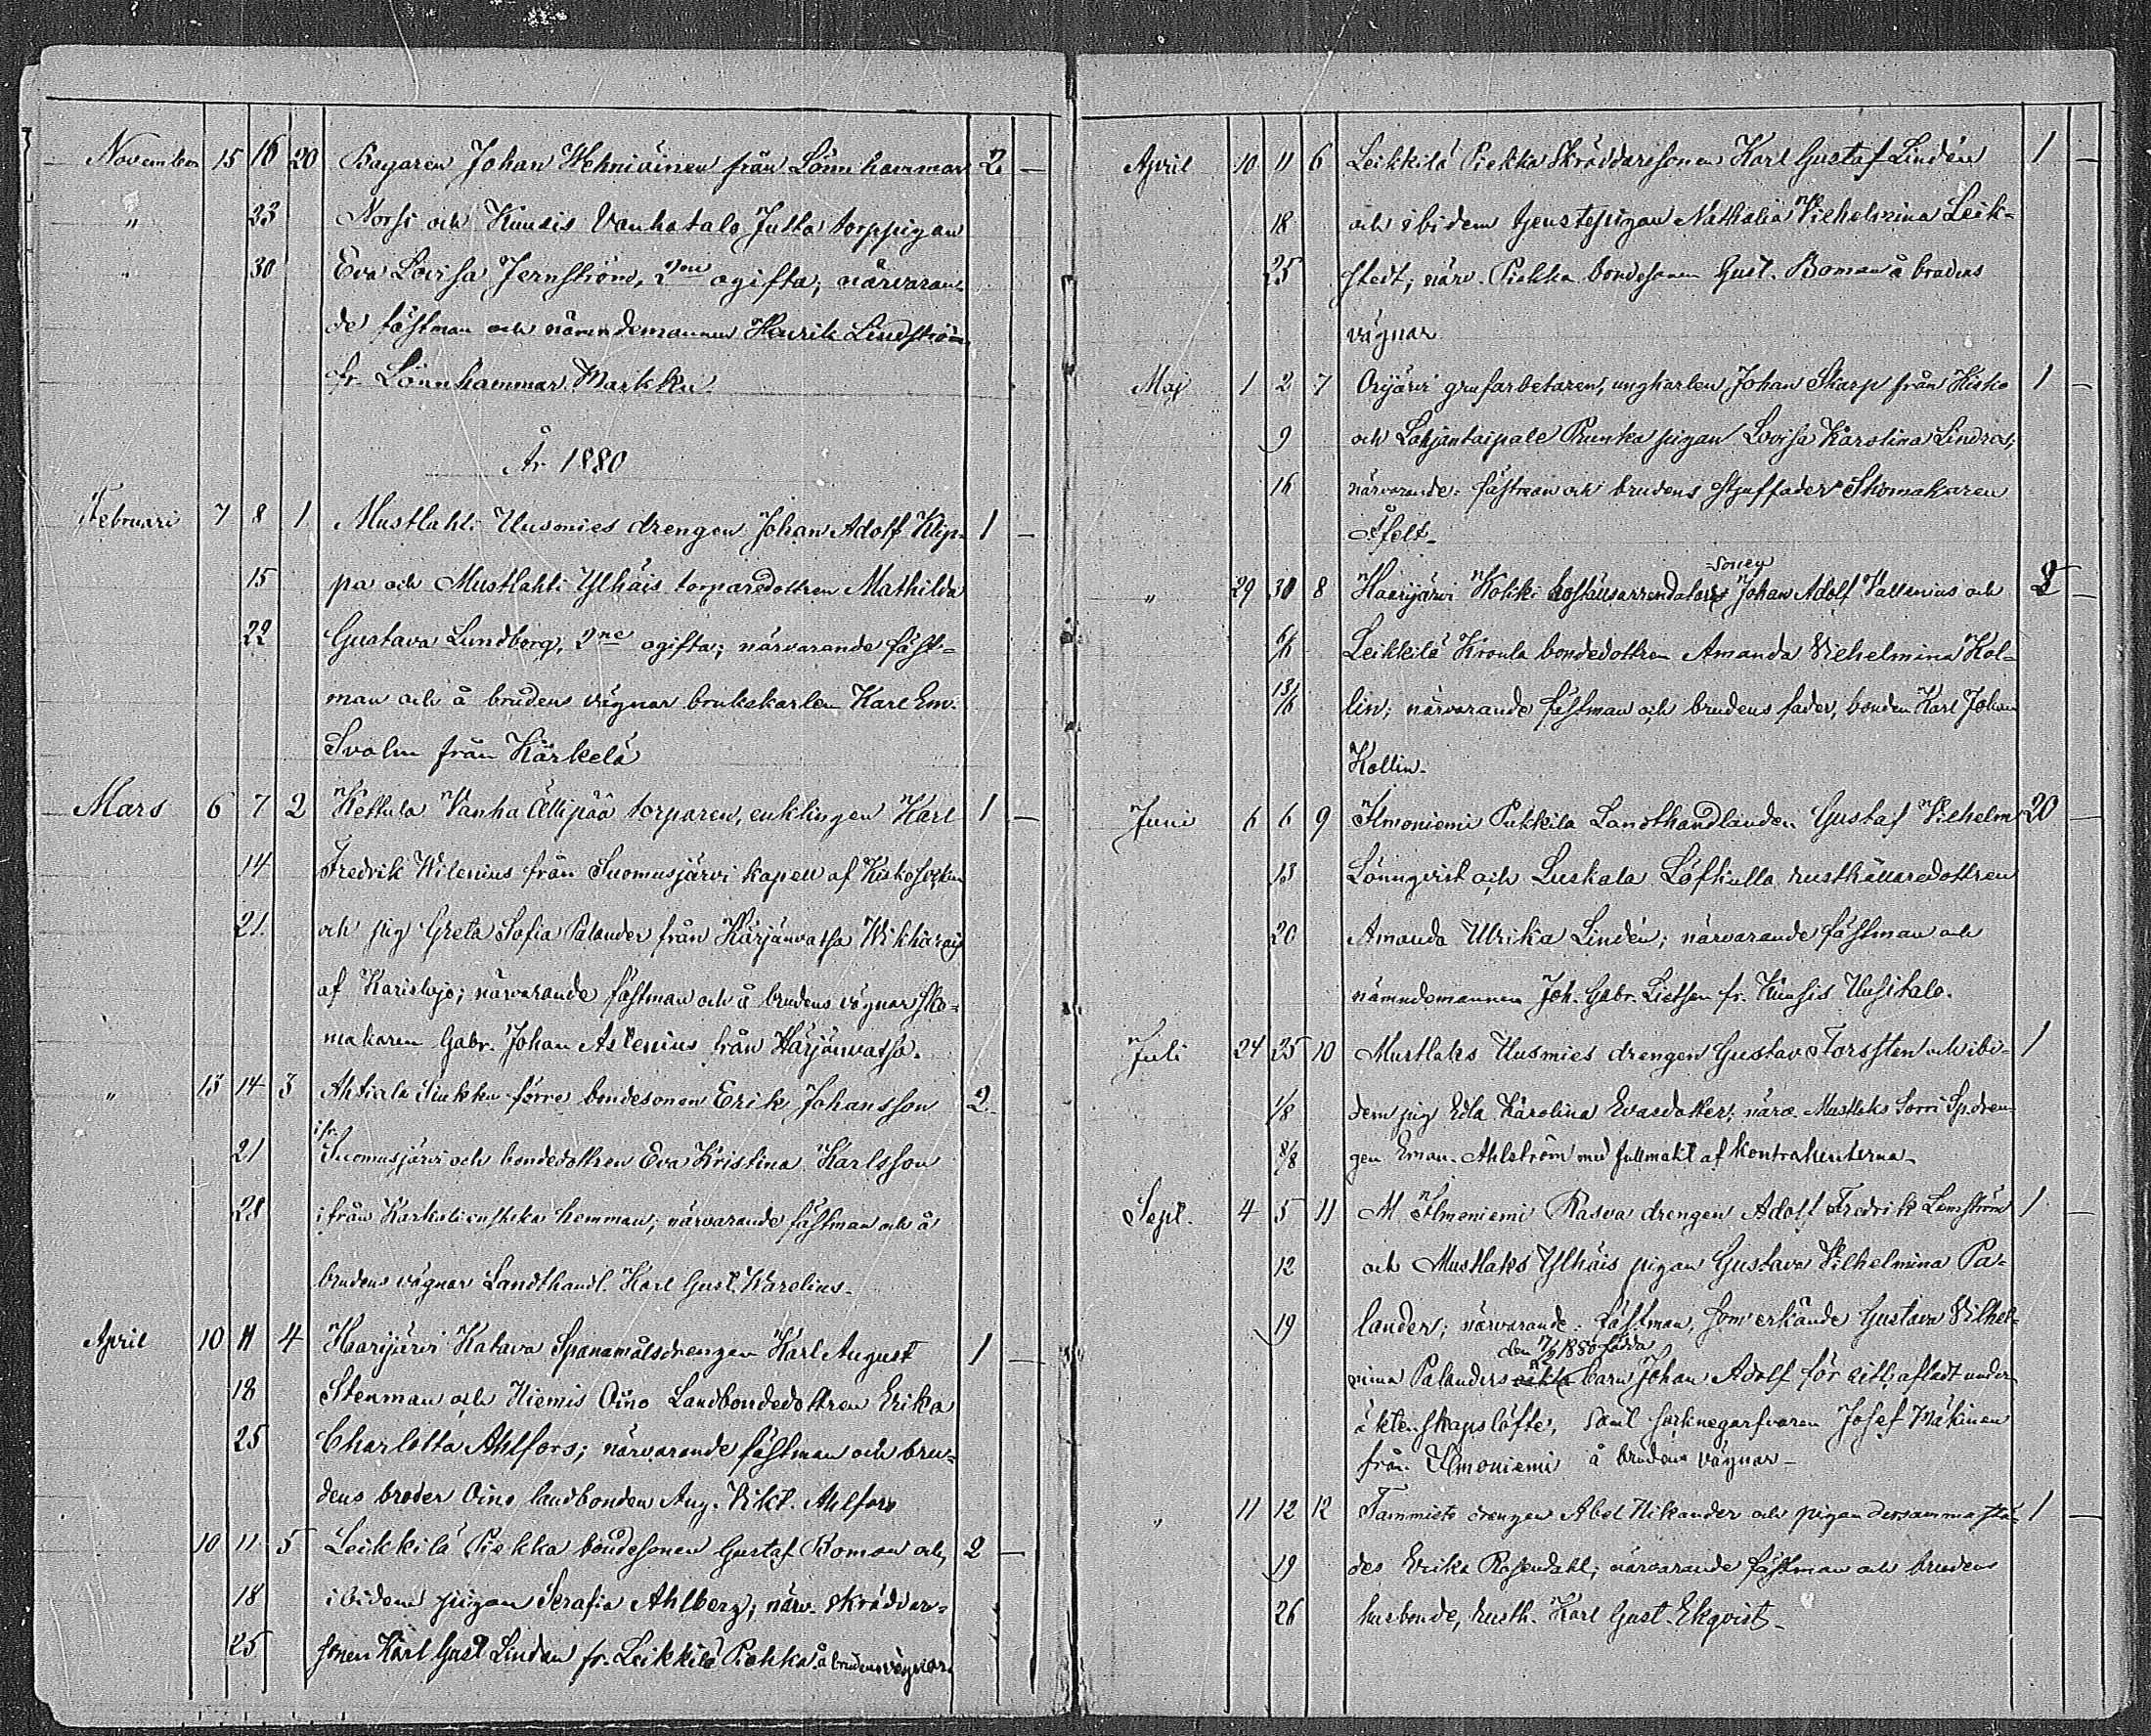 November 15 16 20 Bagaren Johan Wehniäinen från Lönnhammar 2 —
" 23 Norsi och Kuusis Vanhatalo Jutta torppigan
" 30 Eva Lovisa Jernström, 2ne ogifta; närvaran-
de fästman och nämndemannen Henrik Lindström
fr. Lönnhammar Markku.
År 1880
Februari 7 8 1 Mustlahti Uusmies drengen Johan Adolf Klip- 1 —
15 pa och Mustlahti Ylhäis torparedottren Mathilda
22 Gustava Lundborg, 2ne ogifta; närvarande fäst-
man och å brudens vägnar brukskarlen Karl Em.
Svalm från Kärkelä
Mars 6 7 2 Kettula Vanha Ällipää torparen, enklingen Karl 1 —
14 Fredrik Wilenius från Suomusjärvi kapell af Kisko socken
21 och pig Greta Sofia Palander från Härjänvatsa
af Karislojo; närvarande fästman och å brudens vägnar sko-
makaren Gabr. Johan Askenius från Härjänvatsa.
" 13 14 3 Ahtiala Siukku förre bondesonen Erik Johansson 2
i fr.
21 Suomusjärvi och bondedottren Eva Kristina Karlsson
28 ifrån hemman; närvarande fästman och å
brudens vägnar Landthandl. Karl Gust. Karelius.
April 10 11 4 Haarijärvi Katava Spanamålsdrengen Karl August 1 —
18 Stenman och Niemis Oino Landbondedottren Erika
25 Charlotta Ahlfors; närvarande fästman och bru-
dens broder Oino landbonden Aug. Vikt. Ahlfors
10 11 5 Leikkilä Piekka bondesonen Gustaf Roman och 2 —
18 ibidem pigan Serafia Ahlberg; närv. skräddar-
25 sonen Karl Gust Lindén fr. Leikkilä Piekka å brudens vägnar.
April 10 11 6 Leikkilä Piekka Skräddaresonen Karl Gustaf Lindén 1 —
18 och ibidem tjenstepigan Nathalia Vilhelmina Leik-
25 stedt; närv. Piekka bondesonen Gust. Roman å brudens
vägnar
Maj 1 2 7 Orijärvi grufarbetaren, ungkarlen Johan Skarp från Kisko 1 —
9 och Lohjantaipale Prunka pigan Lovisa Karolina Lindros,
16 närvarande: fästman och brudens styffader Skomakaren
Åfelt.
sonen
" 29 30 8 Haarijärvi Kokki Johan Adolf Vallenius och 2 —
6/6 Leikkilä Kroula bondedottren Amanda Vilhelmina Kol-
13/6 lin; närvarande fästman och brudens fader, bonden Karl Johan
Kollin.
Juni 6 6 9 Ilmoniemi Pukkila Landthandlanden Gustaf Vilhelm 20 —
13 Lönnqvist och Luskala Löfkulla rusthållaredottren
20 Amanda Ulrika Lindén; närvarande fästman och
nämndemannen Joh. Gabr. Lietsen fr. Kuusis Uusitalo.
Juli 24 25 10 Mustlaks Uusmies drengen Gustav Forssten och ibi- 1
1/8 dem pig Edla Karolina Evasdotter; närv. Mustlaks Sorri Sp.dren-
8/8 gen Eman. Ahlström med fullmakt af kontrahenterna.
Sept. 4 5 11 M Ilmoniemi Rasva drengen Adolf Fredrik Lemström 1 —
12 och Mustlaks Ylhäis pigan Gustava Vilhelmina Pa-
19 lander; närvarande: fästman, som erkände Gustava Vilhel-
den 17/2 1880 födda
mina Palanders barn Johan Adolf för sitt, afladt under
äktenskapslöfte, samt socknegarfvaren Josef Mäkinen
från Ilmoniemi å brudens vägnar —
" 11 12 12 Tammisto drengen Abel Nikander och pigan dersammastä- 1 —
19 des Erika Rosendahl; närvarande fästman och brudens
26 husbonde, rusth. Karl Gust. Ekqvist.